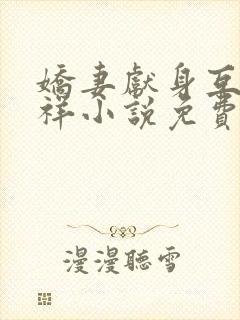 嬌妻獻身互
祥小說免費
漫漫聽雪